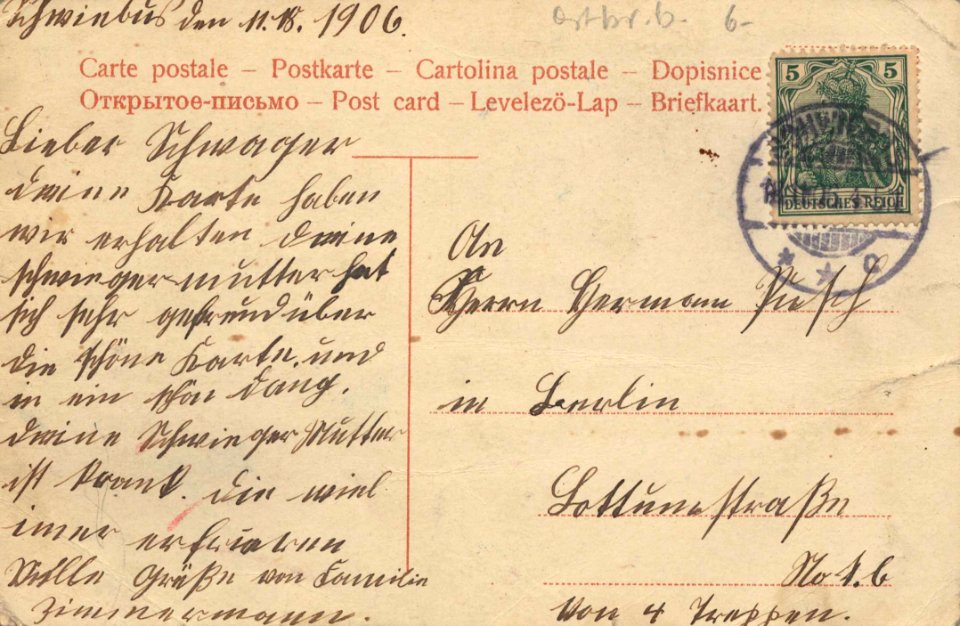 Schwiebus den 11.18. 1906.
6-
Carte postale – Postkarte – Cartolina postale – Dopisnice
Открытоѳ-письмо – Post card – Levelezö-Lap – Briefkaart.
5 5
DEUTSCHES REICH
Lieber Schwager
deine Karte haben
wir erhalten deine
schwiegermutter hat
sich sehr gefreud über
die schöne Karte. und
in ein schön dang.
deine Schwieger Mutter
ist krank. die wiel
imer erfrieren
Grüße von Familie
Zimmermann.
An
Herrn Hermann
in Berlin
Lottumstraße
No 1. b
Von 4 Treppen.